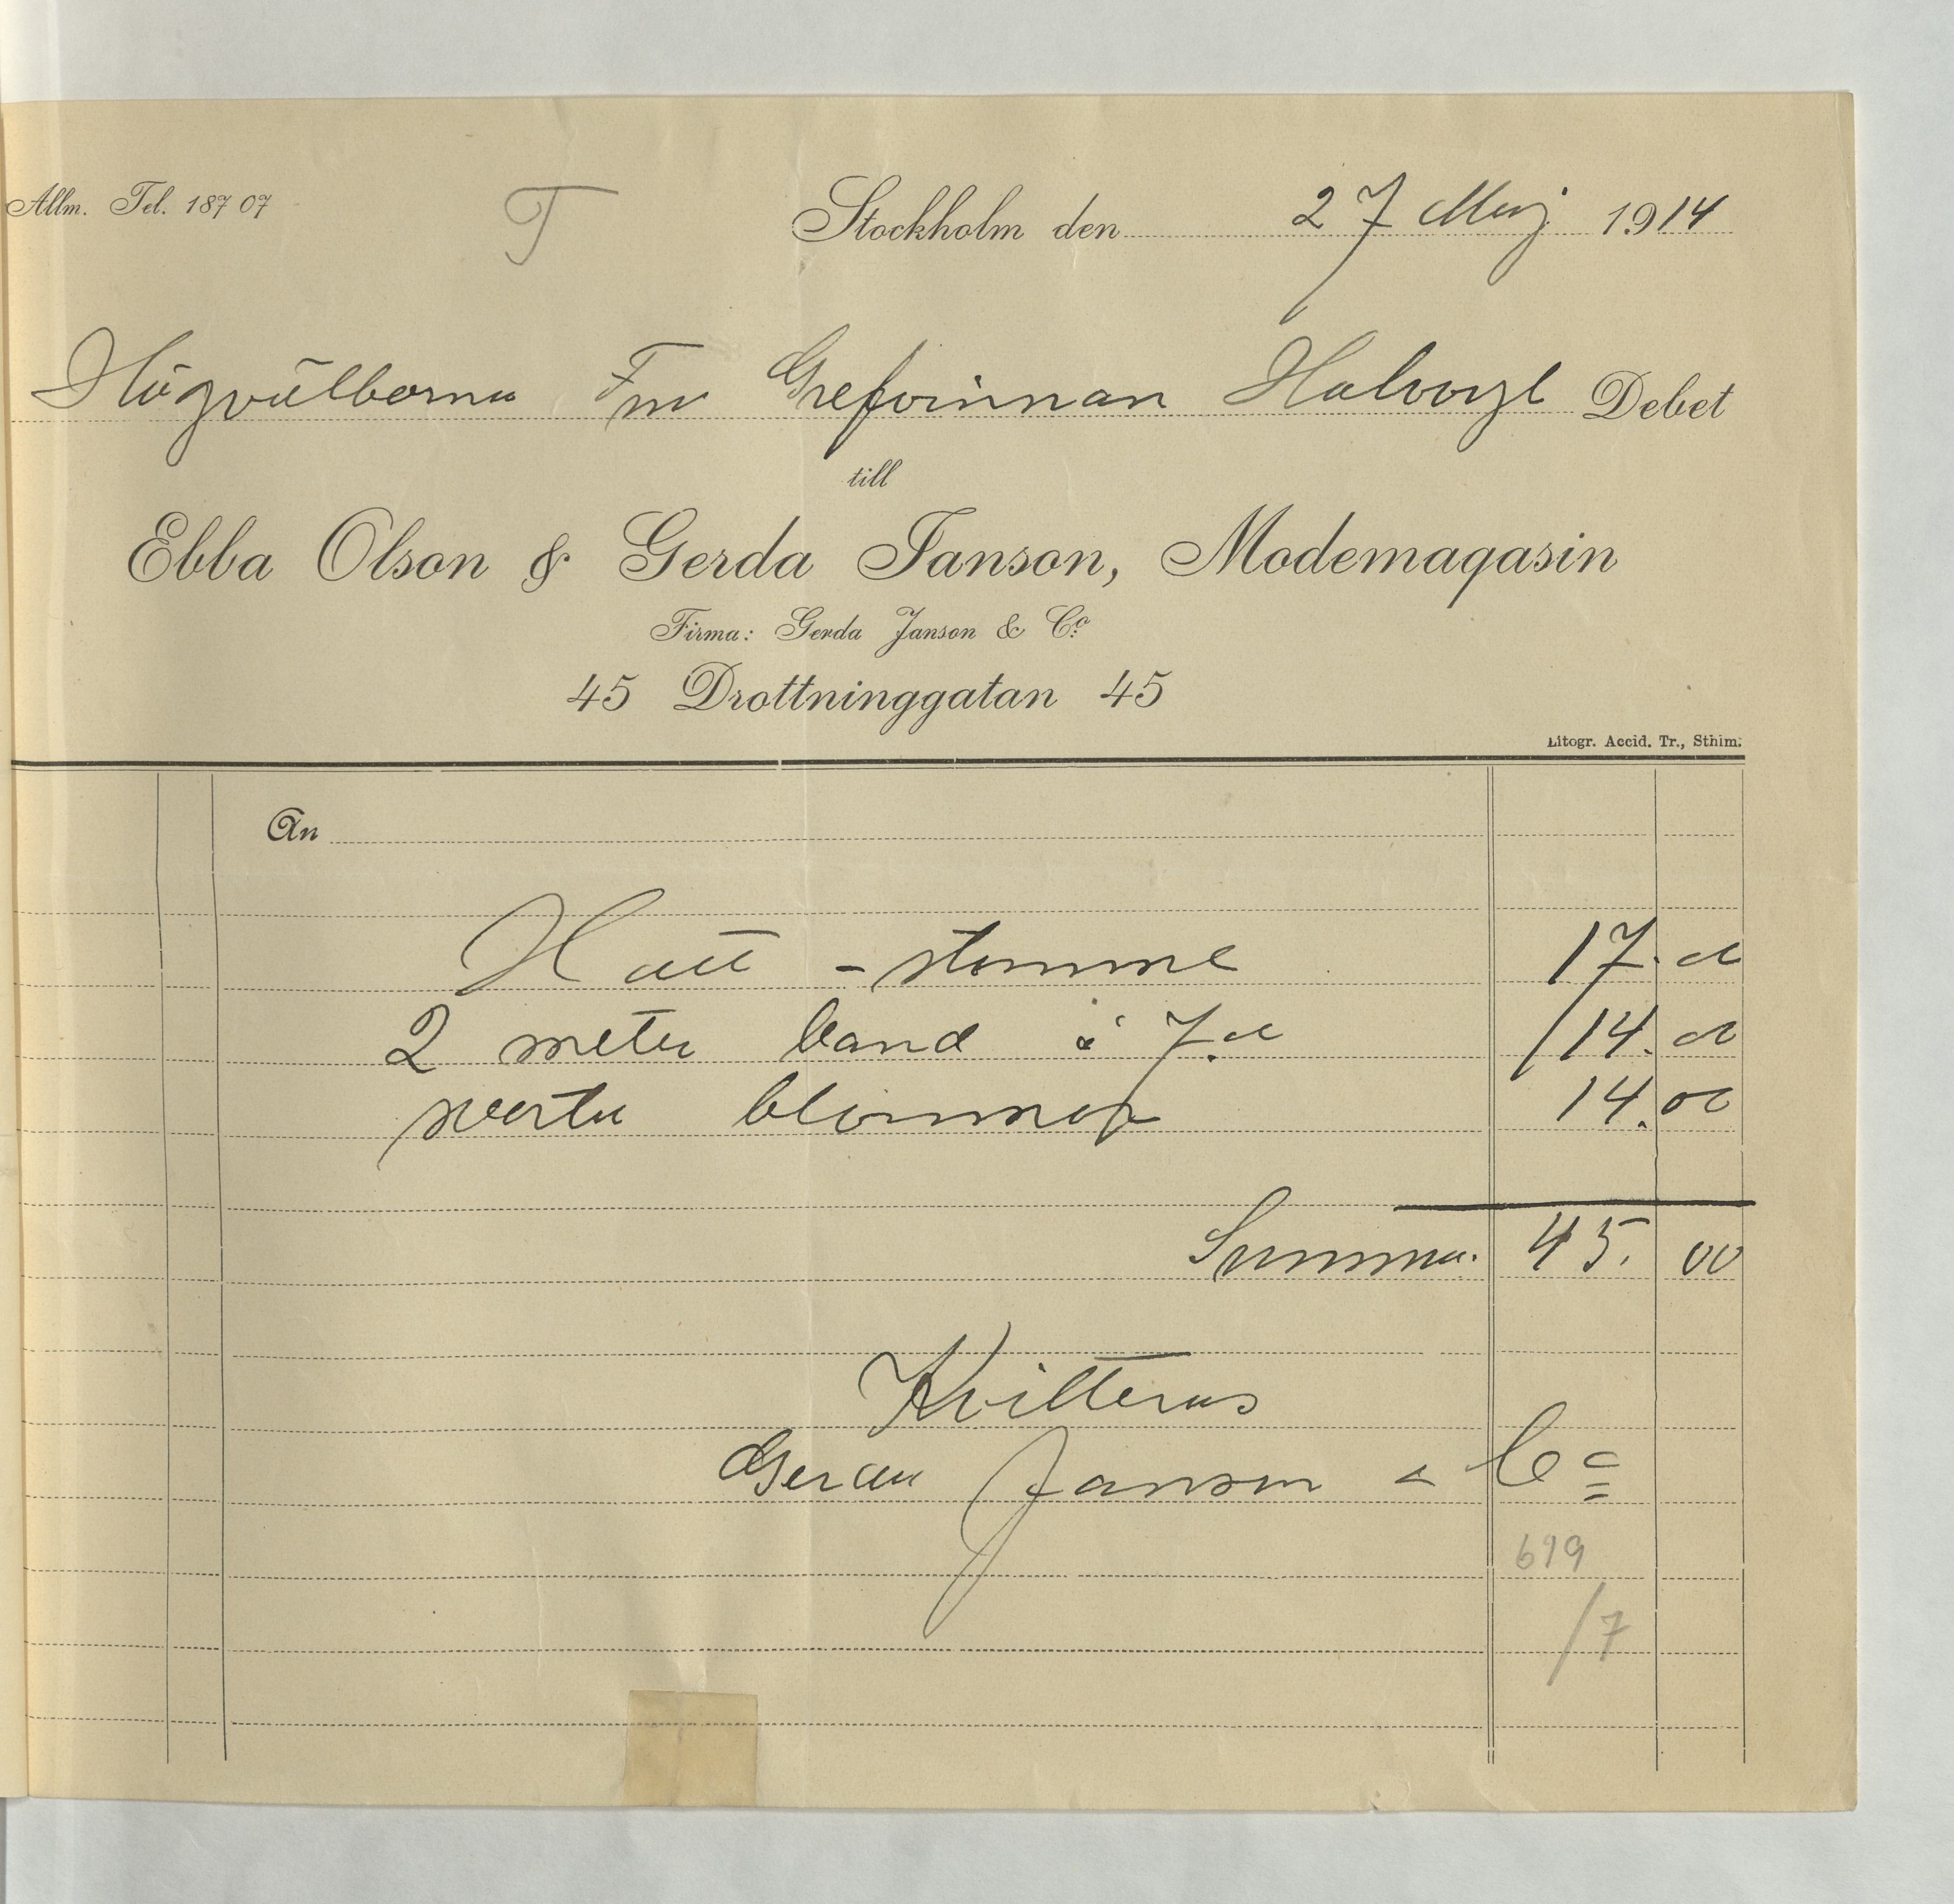 Allm. Tel. 187 07
T
Stockholm den 27 Maj 1914
Högvälborna Fru Grefvinnan Halwyl Debet
till
Ebba Olson & Gerda Janson, Modemagasin
Firma: Gerda Janson & Co.
45 Drottninggatan 45
Litogr. Accid. Tr., Sthlm.
An
Hatt - stomme 17. 00
2 meter band à 7.00 14. 00
svarta blommor 14. 00
Summa. 45. 00
Kvitteras
Gerda Janson & Co
619
/7